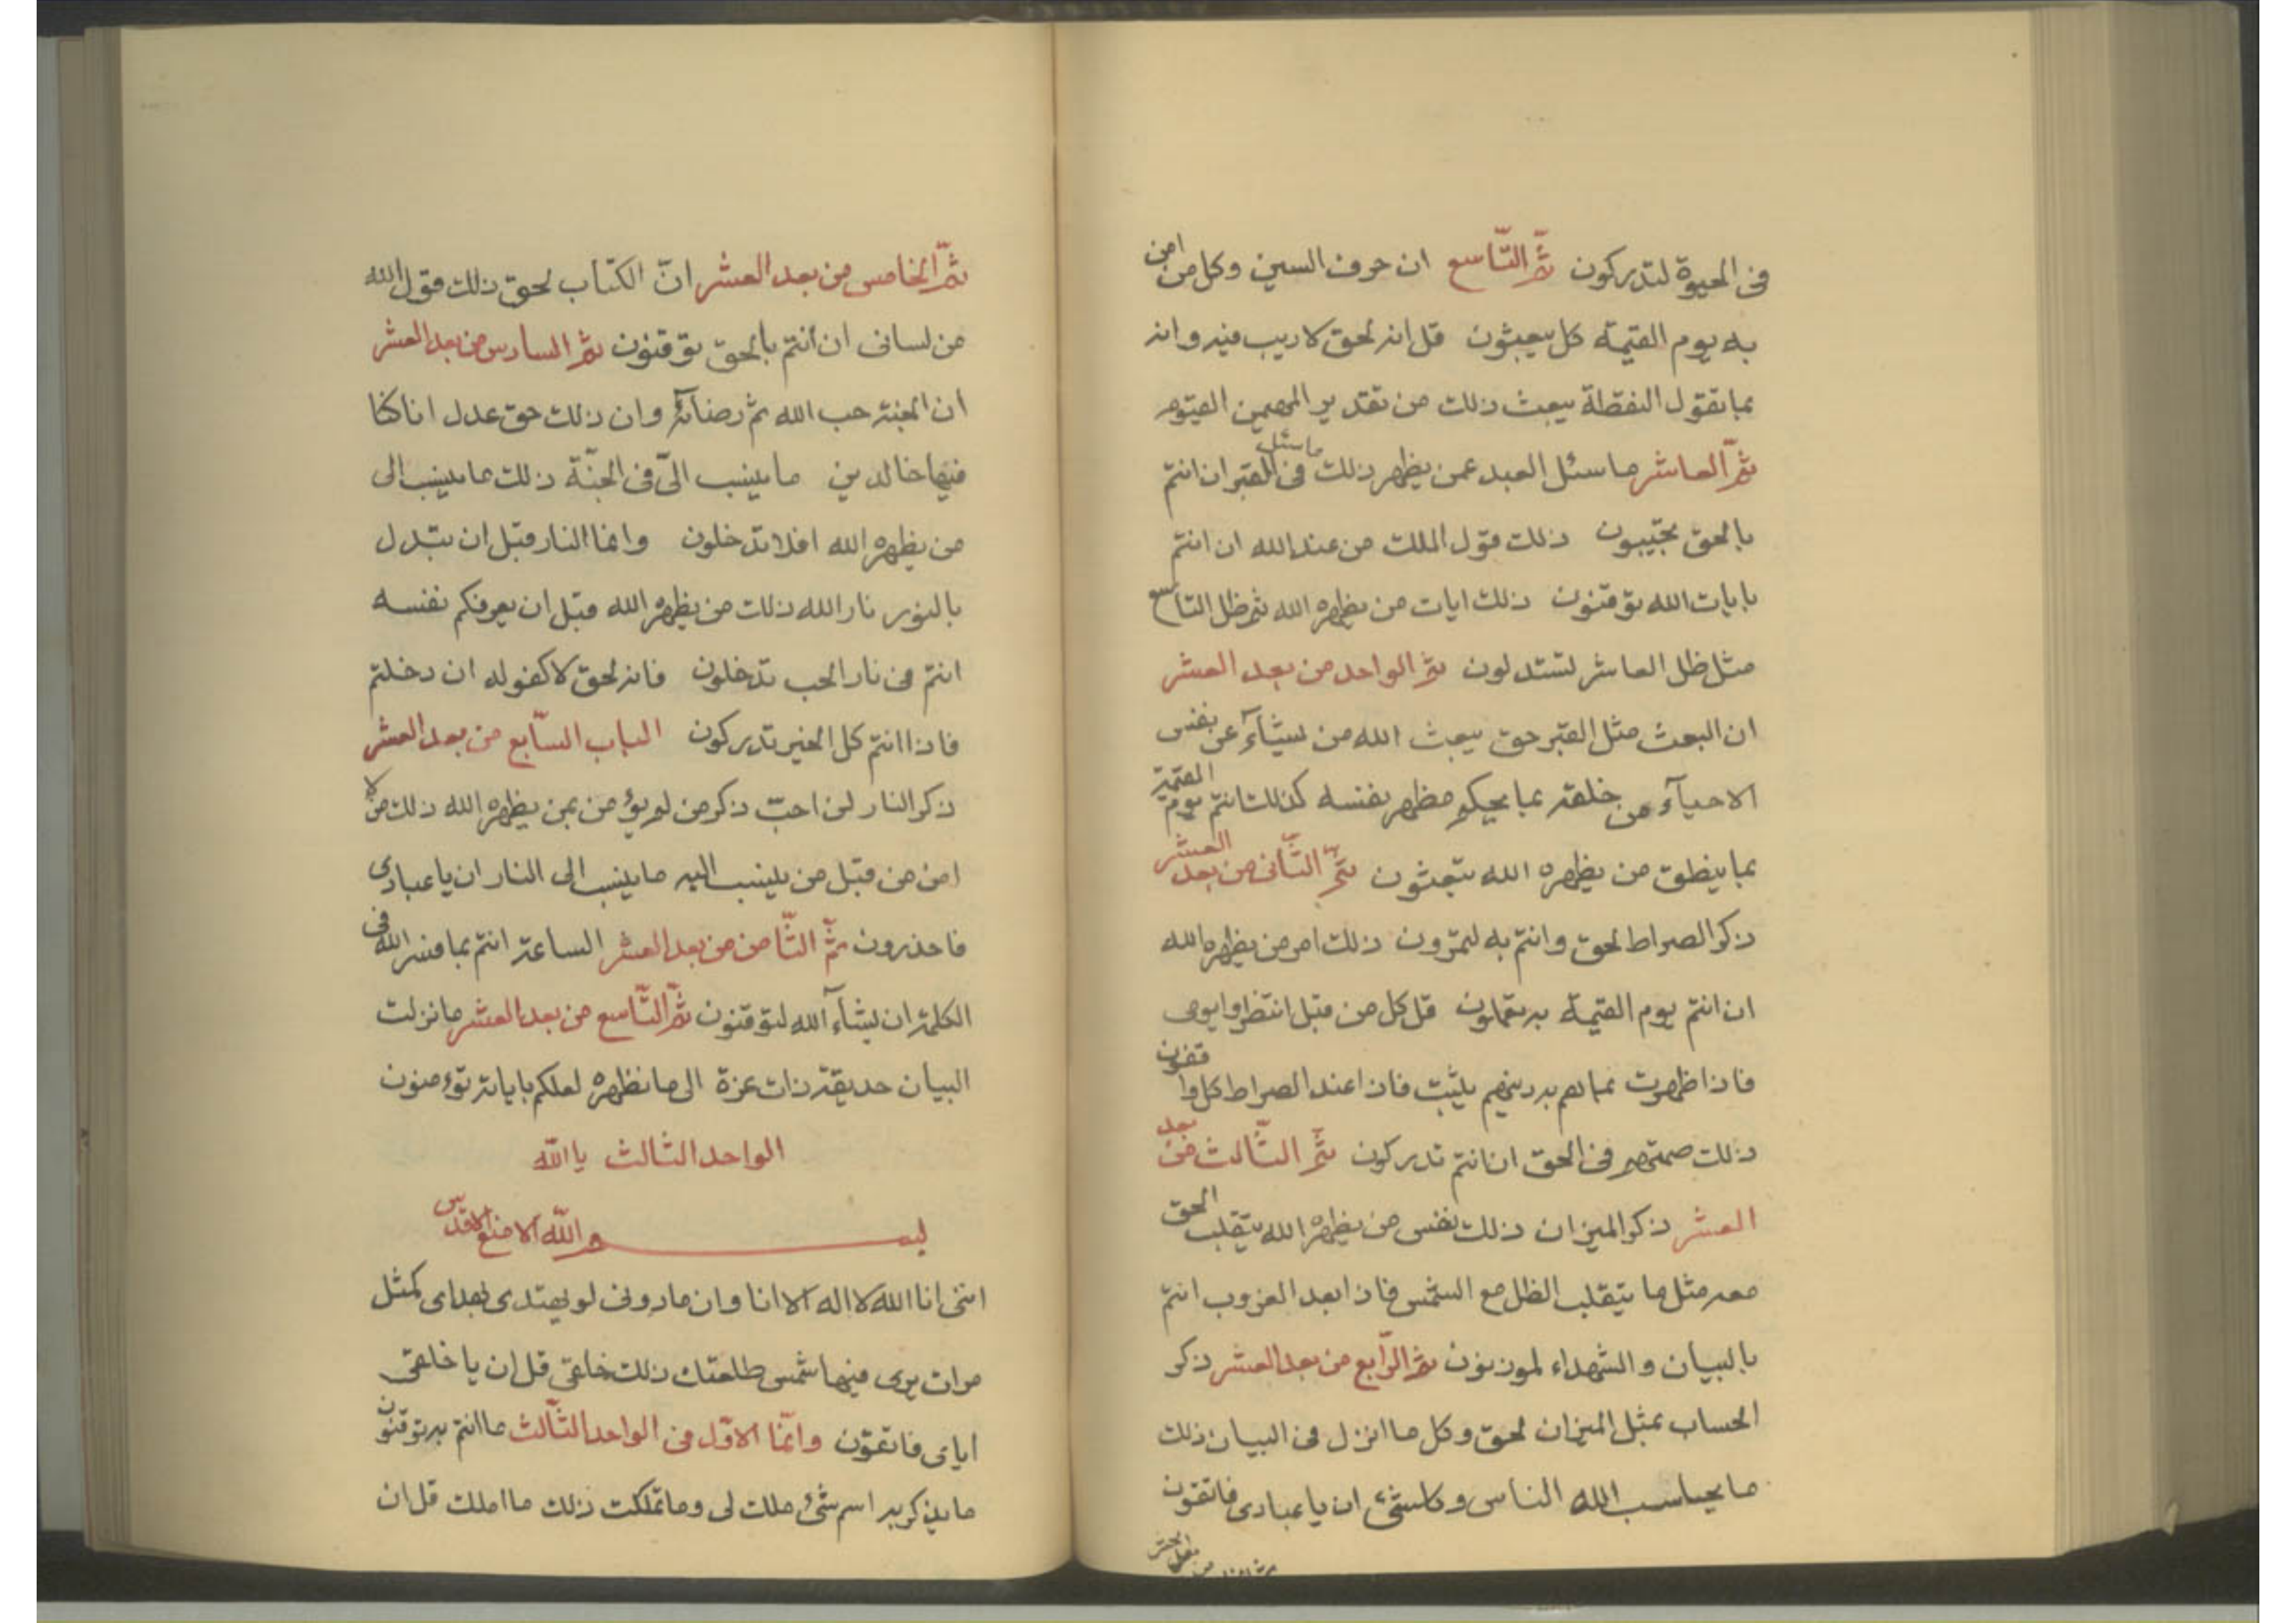 فی الحیوة لتدرکون ثمّ التّاسع ان حرف السین وکل من امن
به یوم القیمة کل یبعثون قل انه لحق لا ریب فیه وانه
بما تقول النقطة یبعث ذلك من تقدیر المهیمن القیّوم
ثمّ العاشر ما سئل العبد عمن یظهر ذلك ما سئل فی القبر ان انتم
بالحق تجّیبون ذلك قول الملك من عند الله ان انتم
بایات الله توقنون ذلك ایات من یظهره الله ثم ظل التاسع
مثل ظل العاشر لتستدلون ثمّ الواحد من بعد العشر
ان البعث مثل القبر حق یبعث الله من یشآء عن نفس
الاحیآء من خلقه بما یحکم مظهر نفسه کذلك انتم یوم القیمة
بما ینطق من یظهره الله تبعثون ثمّ الثّانی من بعد العشر
ذکر الصراط لحق وانتم به لتمرّون ذلك امر من یظهره الله
ان انتم یوم القیمة به تعملون قل کل من قبل انتظروا یومی
فاذا ظهرت بما لهم به دینهم یثبت فاذا عند الصراط کل واقفون
ذلك صمتهم فی الحق ان انتم تدرکون ثمّ الثّالث من بعد
العشر ذکر المیزان ذلك نفس من یظهره الله یتقلب الحق
معه مثل ما یتقلب الظل مع الشّمس فاذا بعد الغروب انتم
بالبیان والشهداء لموزنون ثمّ الرّابع من بعد العشر ذکر
الحساب بمثل المیزان لحق وکل ما انزل فی البیان ذلك
ما یحاسب الله الناس وکلشئ ان یا عبادی فاتقون
ثمّ الخامس من بعد العشر انّ الکتاب لحق ذلك قول الله
من لسانی ان أنتم بالحق توقنون ثمّ السادس من بعد العشر
ان الجنة حب الله ثم رضائه وان ذلك حق عدل انا کنا
فیها خالدین ما ینسب الیّ فی الجنّة ذلك ما ینسب الی
من یظهره الله افلا تدخلون وانما النار قبل ان تبدل
بالنور نار الله ذلك من یظهره الله قبل ان یعرفکم نفسه
انتم فی نار الحب تدخلون فانه لحق لا کفو له ان دخلتم
فاذا انتم کل الخیر تدرکون الباب السّابع من بعد العشر
ذکر النار لن احبّ ذکر من لم یؤمن بمن یظهره الله ذلك من لا
امن من قبل من ینسب الیه ما ینسب الی النار ان یا عبادی
فاحذرون ثمّ الثّامن من بعد العشر الساعة انتم بما فسر الله فی
الکلمة ان یشآء الله لتوقنون ثمّ التّاسع من بعد العشر ما نزلت
البیان حدیقة ذات عزة الی ما نظهره لعلکم بایاته تؤمنون
الواحد الثالث یا الله
بسم الله الامنع الاقدس
اننی انا الله لا اله الا انا وان ما دونی لو یهتدی بهدای کمثل
مرات یری فیها شمس طلعتك ذلك خلقی قل ان یا خلقی
ایای فاتقون وانّما الاوّل فی الواحد الثّالث ما انتم به توقنون
ما یذکر به اسم شئ ملك لی وما تملکت ذلك ما املك قل ان